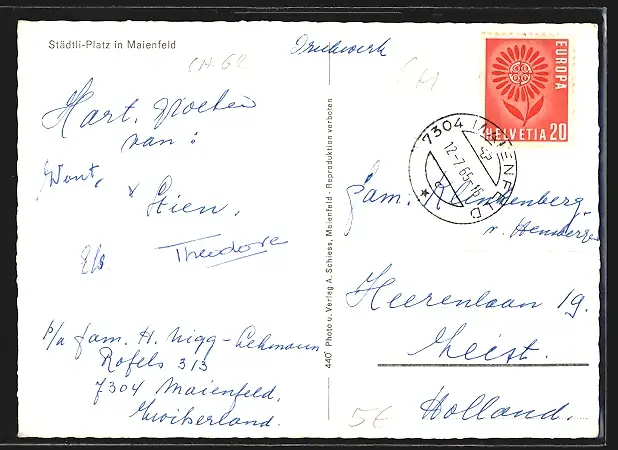 Städtli-Platz in Maienfeld
CH-62
Hart. Groeten
van:
Wout,
Stien,
Els.
Theodore
p/a fam. H. Nigg-Lehmann
Rofels 313
7304 Maienfeld,
Zwitserland.
440 Photo u. Verlag A. Schiess, Maienfeld - Reproduktion verboten
Drukwerk
CH
EUROPA
HELVETIA 20
7304 MAIENFELD
12-7.65-16
Fam.
v. Hemberger
Heerenlaan 19.
Zeist.
Holland.
5E